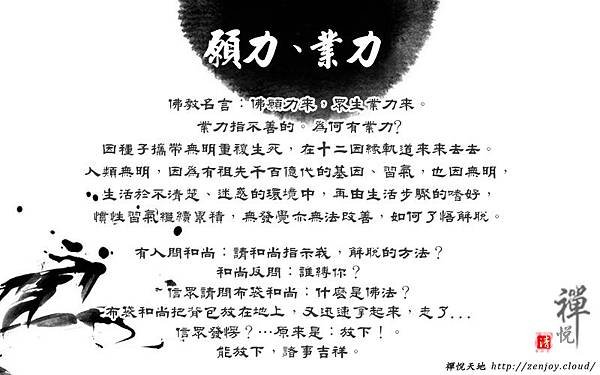 願力、業力
佛教名言：佛願力來，眾生業力來。
業力指不善的。為何有業力?
因種子攜帶無明重複生死，在十二因緣軌道來來去去。
人類無明，因為有祖先千百億代的基因、習氣，也因無明，
生活於不清楚、迷惑的環境中，再由生活步驟的嗜好，
慣性習氣繼續累積，無發覺亦無法改善，如何了悟解脫。
有人問和尚：請和尚指示我，解脫的方法？
和尚反問：誰縛你？
信眾請問布袋和尚：什麼是佛法？
布袋和尚把背包放在地上，又迅速拿起來，走了...
信眾發愣？…原來是：放下！。
能放下，諸事吉祥。
禪悅
禪悅天地 http://zenjoy.cloud/